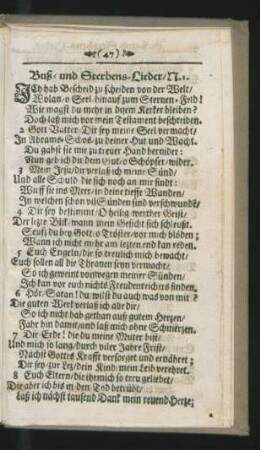 (47)
Buß- und Sterbens-Lieder/N.1.
ICh hab Bescheid zu scheiden von der Welt/
Wolan/o Seel/hinauf zum Sternen-Feld!
Wie magst du mehr in deinem Kerker bleiben?
Doch laß mich vor mein Testament beschreiben.
2 Gott Vatter/Dir sey meine Seel vermacht/
In Abrams-Schos/zu deiner Hut und Wacht.
Du gabst sie mir zu treuer Hand hernider:
Nun geb ich du dein Gut/o Schöpfer/wider.
3 Mein Jesu/dir verlaß ich meine Sünd/
Und alle Schuld die sich noch an mir findt:
Wurff sie ins Meer/in deine tieffe Wunden/
In welchen schon vil Sünden sind verschwunde.
4 Dir sey bestimmt/O heilig werther Geist/
Der lezte Blik/wann mein Gesicht sich schleußt.
Seufz du bey Gott/o Tröster/vor mich blöden;
Wann ich nicht mehr am lezten end kan reden.
5 Euch Engeln/die so treulich mich bewacht/
Euch sollen all die Thränen seyn vermacht/
So ich geweint von wegen meiner Sünden/
Ich kan vor euch nichts Freudenreichers finden.
6 Hör/Satan! du wilst du auch was von mir?
Die guten Werk verlaß ich alle dir/
So ich nicht hab gethan auß gutem Herzen/
Fahr hin damit/und laß mich ohne Schmerzen.
7 Dir Erde! die du meine Muter bist/
Und mich so lang/durch viler Jahre Frist/
Nächst Gottes Krafft versorget und ernähret;
Dir sey/zur Lez/dein Kind/mein Leib verehret.
8 Euch Eltern/die ihr mich so treu geliebet/
Die aber ich bis in den Tod betrübt/
Laß ich nächst tausend Dank mein reuend Hertz;